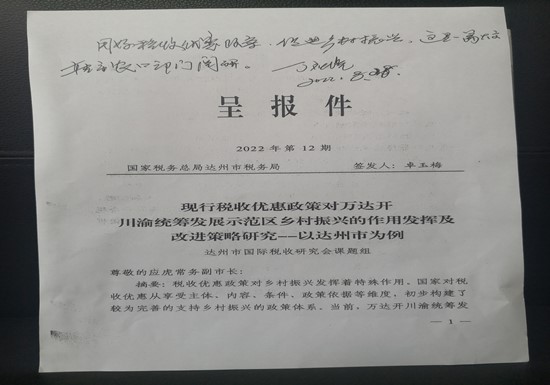 用好税收优惠政策，促进乡村振兴。这是一篇大文
农口部门阅研。
2022.
呈报件
2022 年第 12 期
国家税务总局达州市税务局 签发人：卓玉梅
现行税收优惠政策对万达开
川渝统筹发展示范区乡村振兴的作用发挥及
改进策略研究--以达州市为例
达州市国际税收研究会课题组
尊敬的应虎常务副市长：
摘要：税收优惠政策对乡村振兴发挥着特殊作用。国家对税
收优惠从享受主体、内容、条件、政策依据等维度，初步构建了
较为完善的支持乡村振兴的政策体系。当前，万达开川渝统筹发
— 1 —